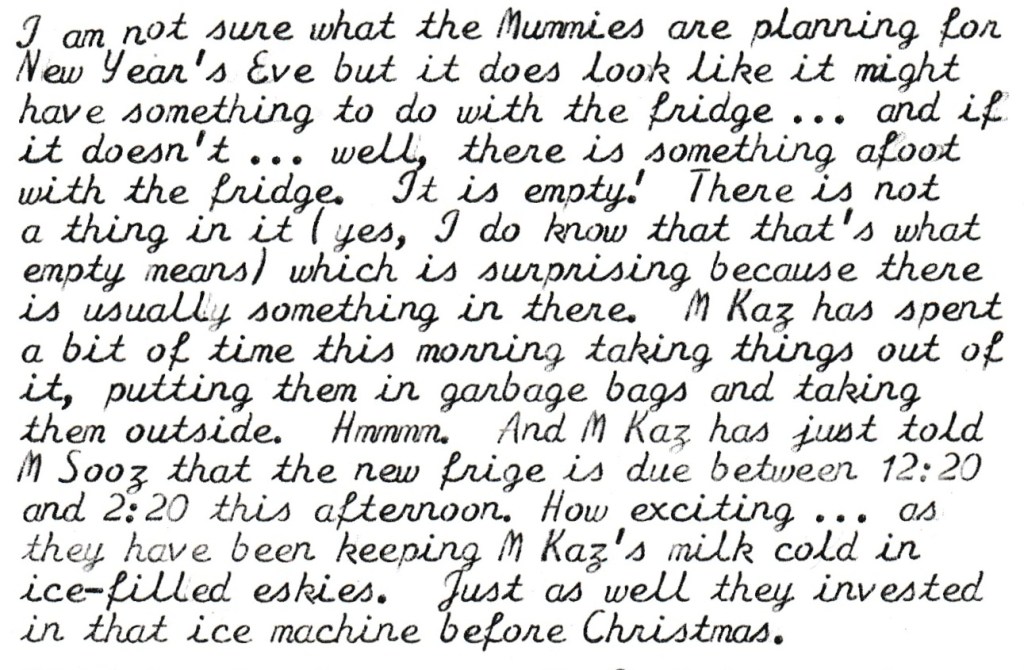 I am not sure what the Mummies are planning for
New Year's Eve but it does look like it might
have something to do with the fridge ... and if
it doesn't ... well, there is something afoot
with the fridge. It is empty! There is not
a thing in it (yes, I do know that that's what
empty means) which is surprising because there
is usually something in there. M Kaz has spent
a bit of time this morning taking things out of
it, putting them in garbage bags and taking
them outside. Hmmmm. And M Kaz has just told
M Sooz that the new frige is due between 12:20
and 2:20 this afternoon. How exciting ... as
they have been keeping M Kaz's milk cold in
ice-filled eskies. Just as well they invested
in that ice machine before Christmas.